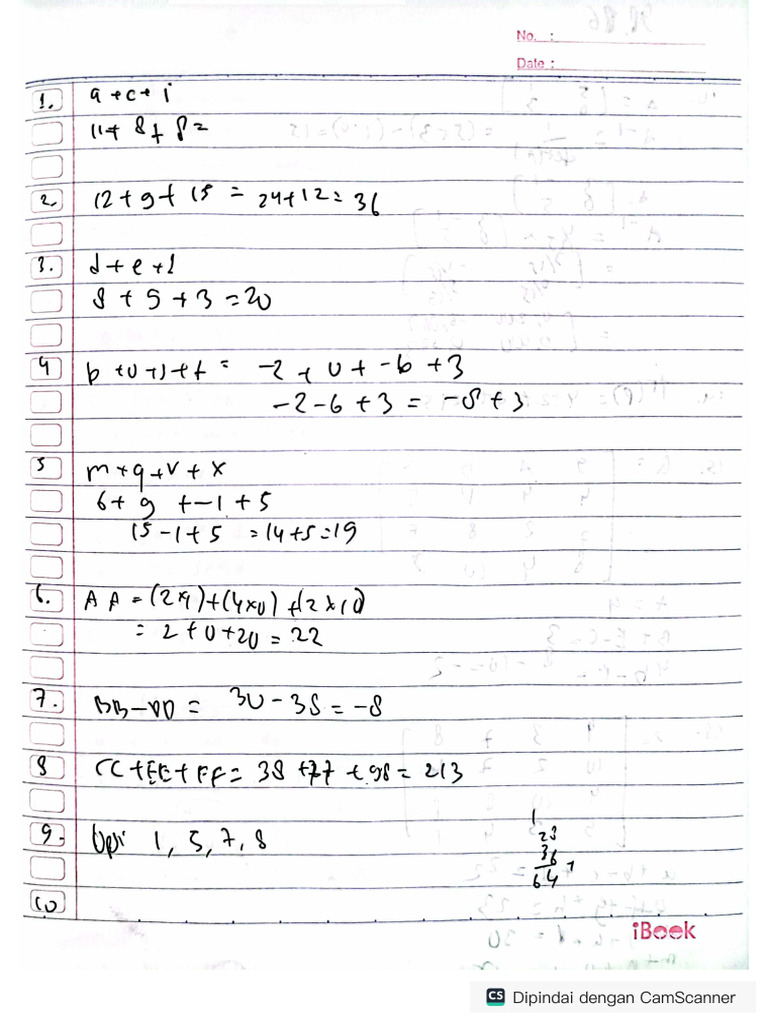 No. :
Date :
1. a + c + i
11 + 8 + 8 =
2. 12 + 9 + 15 = 24 + 12 = 36
3. d + e + l
8 + 5 + 3 = 20
4 b + u + j + t = -2 + 0 + -6 + 3
-2 - 6 + 3 = -8 + 3
5 m + q + v + x
6 + 9 + -1 + 5
15 - 1 + 5 = 14 + 5 = 19
6. AA = (2x1) + (4x0) + (2x10)
= 2 + 0 + 20 = 22
7. BB - DD = 30 - 38 = -8
8 CC + EE + FF = 38 + 77 + 98 = 213
9. Opsi 1, 5, 7, 8
1
28
36
64 +
10
iBook
CS Dipindai dengan CamScanner